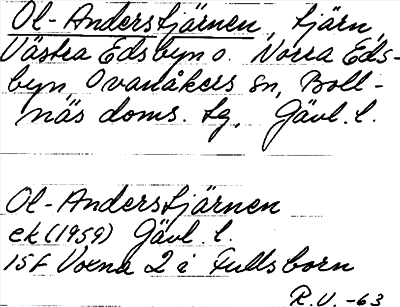 Ol-Anderstjärnen, tjärn,
Västra Edsbyn o. Norra Eds-
byn, Ovanåkers sn, Boll-
näs doms. tg, Gävl. l.
Ol-Anderstjärnen
ek (1959) Gävl. l.
15F Voxna 2 i
R.U. -63